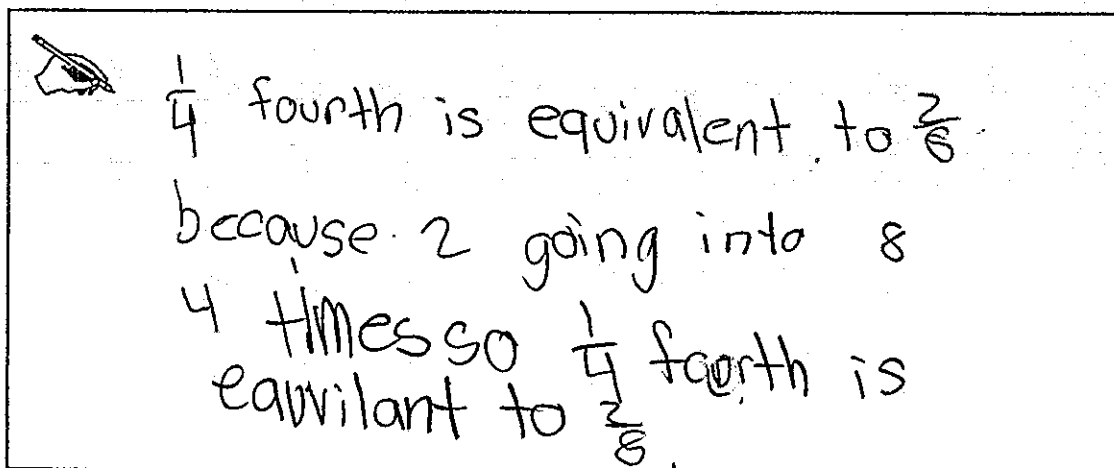 1/4 fourth is equivalent to 2/8
because 2 going into 8
4 times so 1/4 foorth is
equvilant to 2/8.